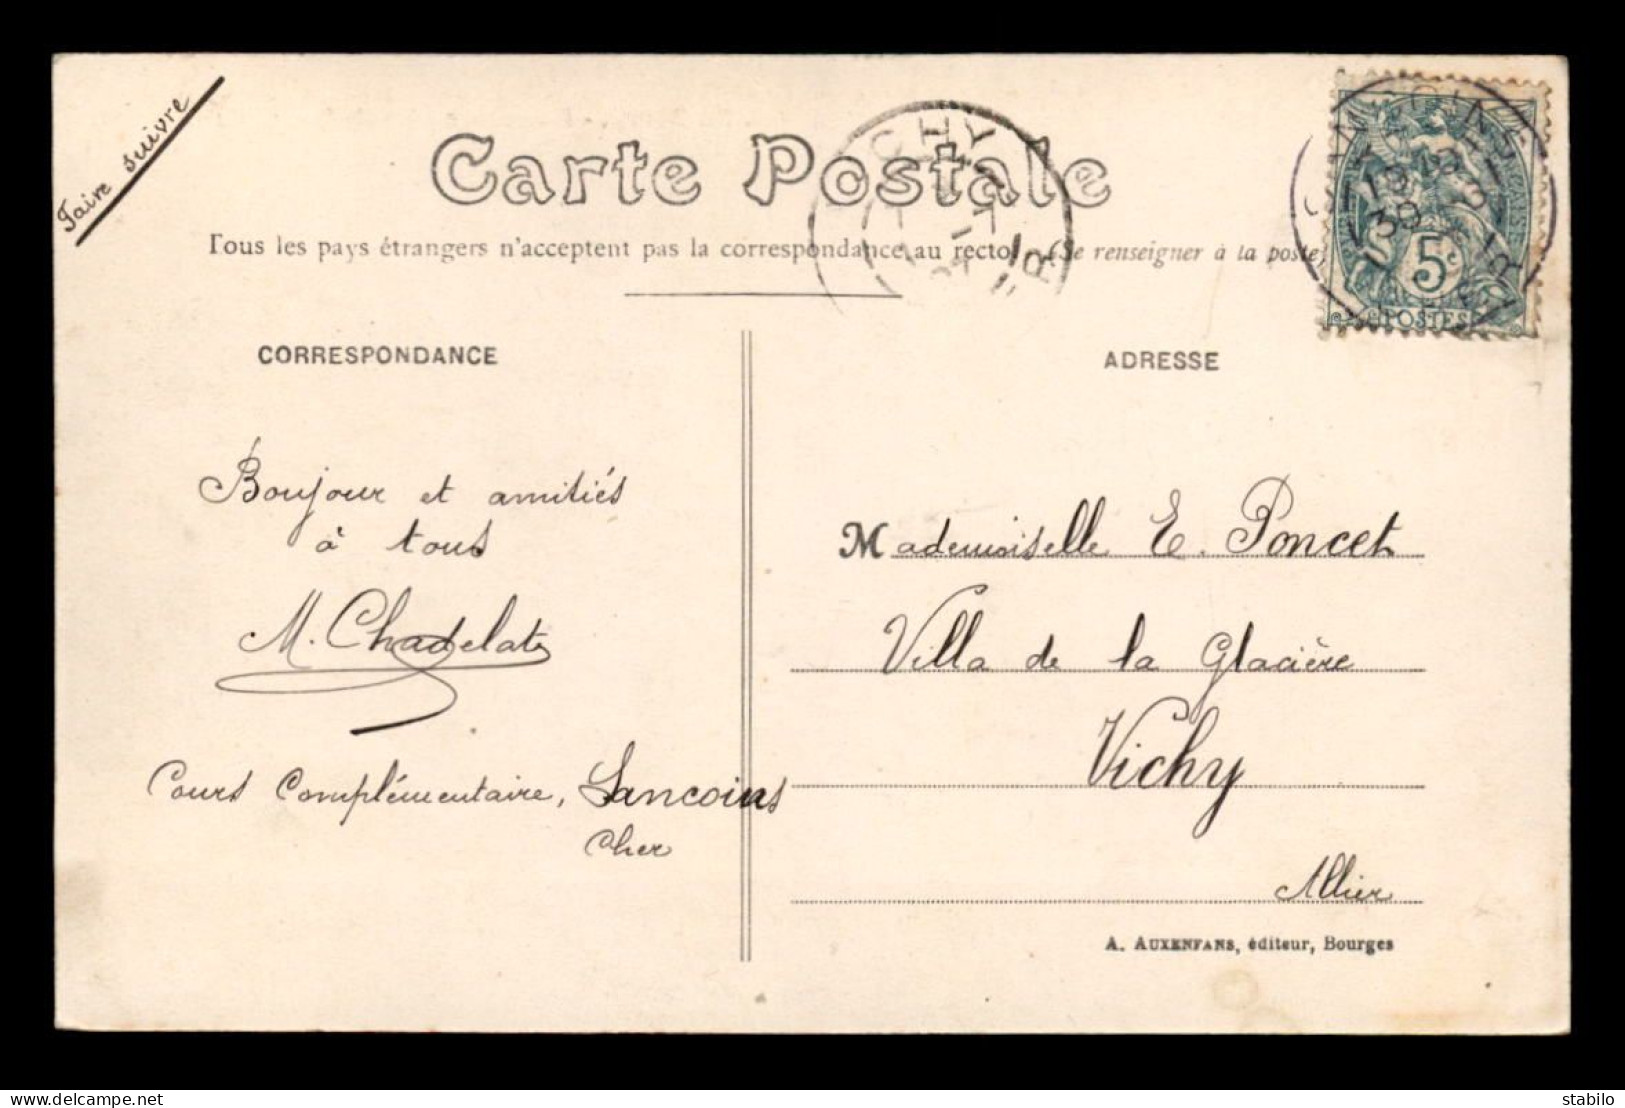 Faire suivre
Carte Postale
Tous les pays étrangers n'acceptent pas la correspondance au recto (Se renseigner à la poste)
5c
POSTES
CORRESPONDANCE
ADRESSE
Boujour et amitiés
à tous
M. Chadelat
Cours Complémentaire, Sancoins
Cher
Mademoiselle E. Poncet
Villa de la Glacière
Vichy
Allier
A. AUXENFANS, éditeur, Bourges
delcampe.net
stabilo